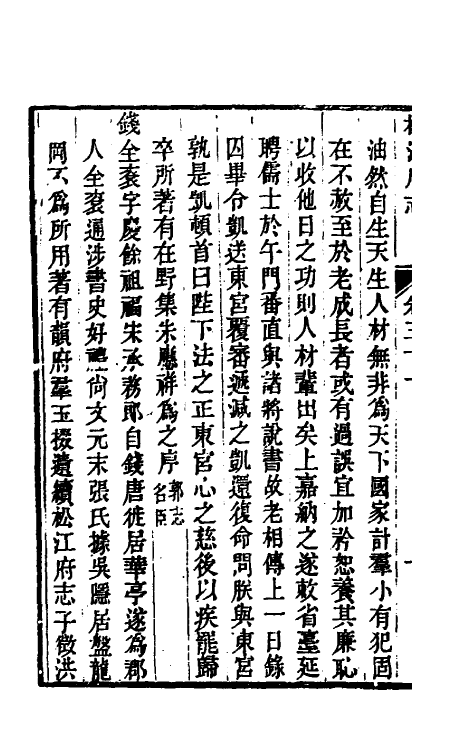 油然自生天生人材無非為天下國家計羣小有犯固
在不赦至於老成長者或有過誤宜加矜恕養其廉恥
以收他日之功則人材輩出矣上嘉納之遂敕省臺延
聘儒士於午門番直與諸將說書故老相傳上一日錄
囚畢令凱送東宮覆審遞減之凱還復命問朕與東宮
孰是凱頓首曰陛下法之正東宮心之慈後以疾罷歸
卒所著有在野集朱應祥為之序郭志名臣
錢全袞字慶餘祖福朱承務郎自錢唐徙居華亭遂為郡
人全袞通涉書史好禮尚文元末張氏據吳隱居盤龍
岡不為所用著有韻府羣玉掇遺續松江府志子徵洪